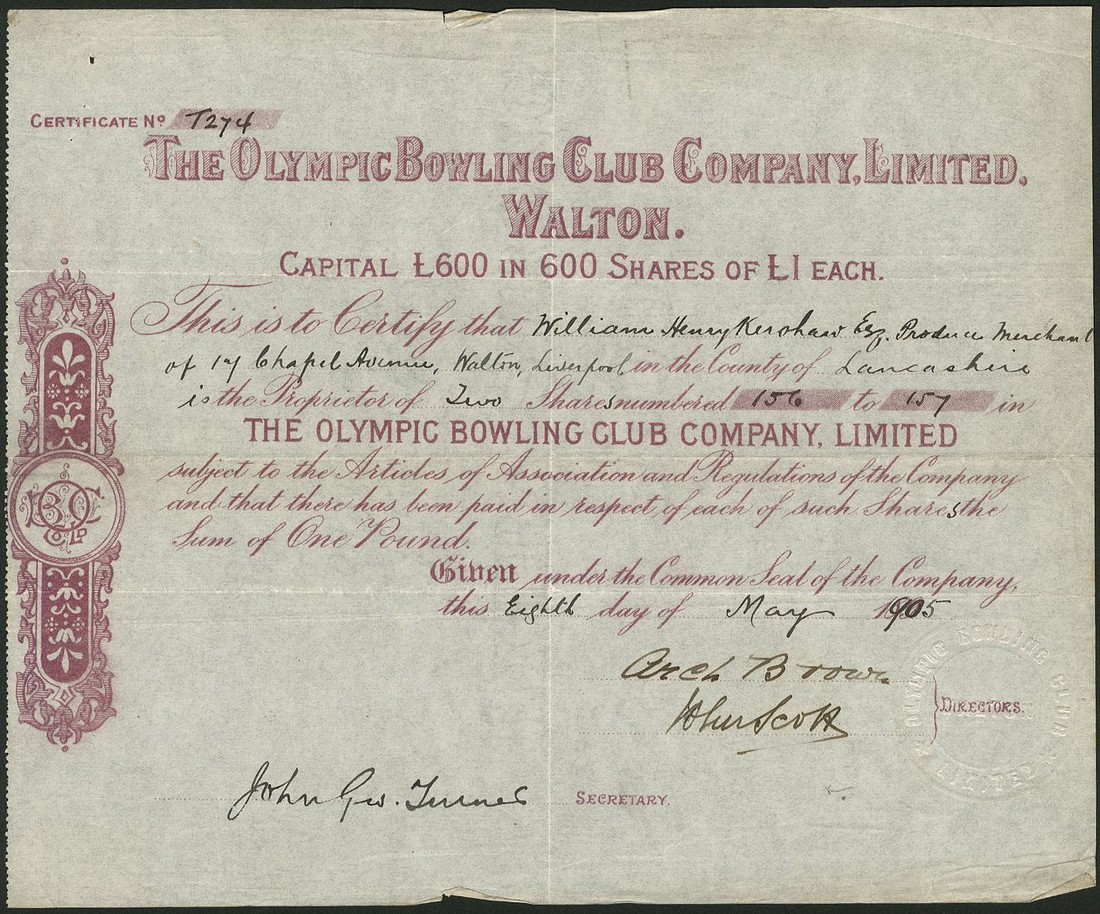 CERTIFICATE No T274
THE OLYMPIC BOWLING CLUB COMPANY, LIMITED.
WALTON.
CAPITAL £600 IN 600 SHARES OF £1 EACH.
This is to Certify that William Henry Kershaw Esq. Produce Merchant
of 17 Chapel Avenue, Walton, Liverpool in the County of Lancashire
is the Proprietor of Two Shares numbered 156 to 157 in
THE OLYMPIC BOWLING CLUB COMPANY, LIMITED
subject to the Articles of Association and Regulations of the Company
and that there has been paid in respect of each of such Shares the
Sum of One Pound.
Given under the Common Seal of the Company,
this Eighth day of May 1905
Arch Brown
Scott
DIRECTORS.
OLYMPIC BOWLING CLUB
LIMITED
John Gw. Turner SECRETARY.